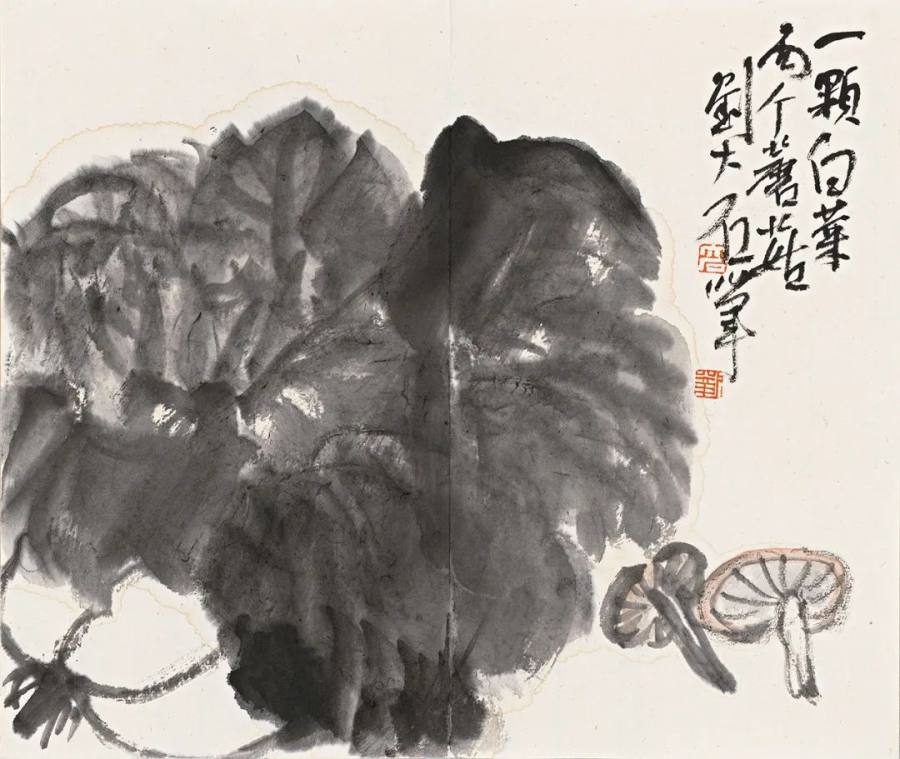 一顆白菜
两个蘑菇
劉大石筆